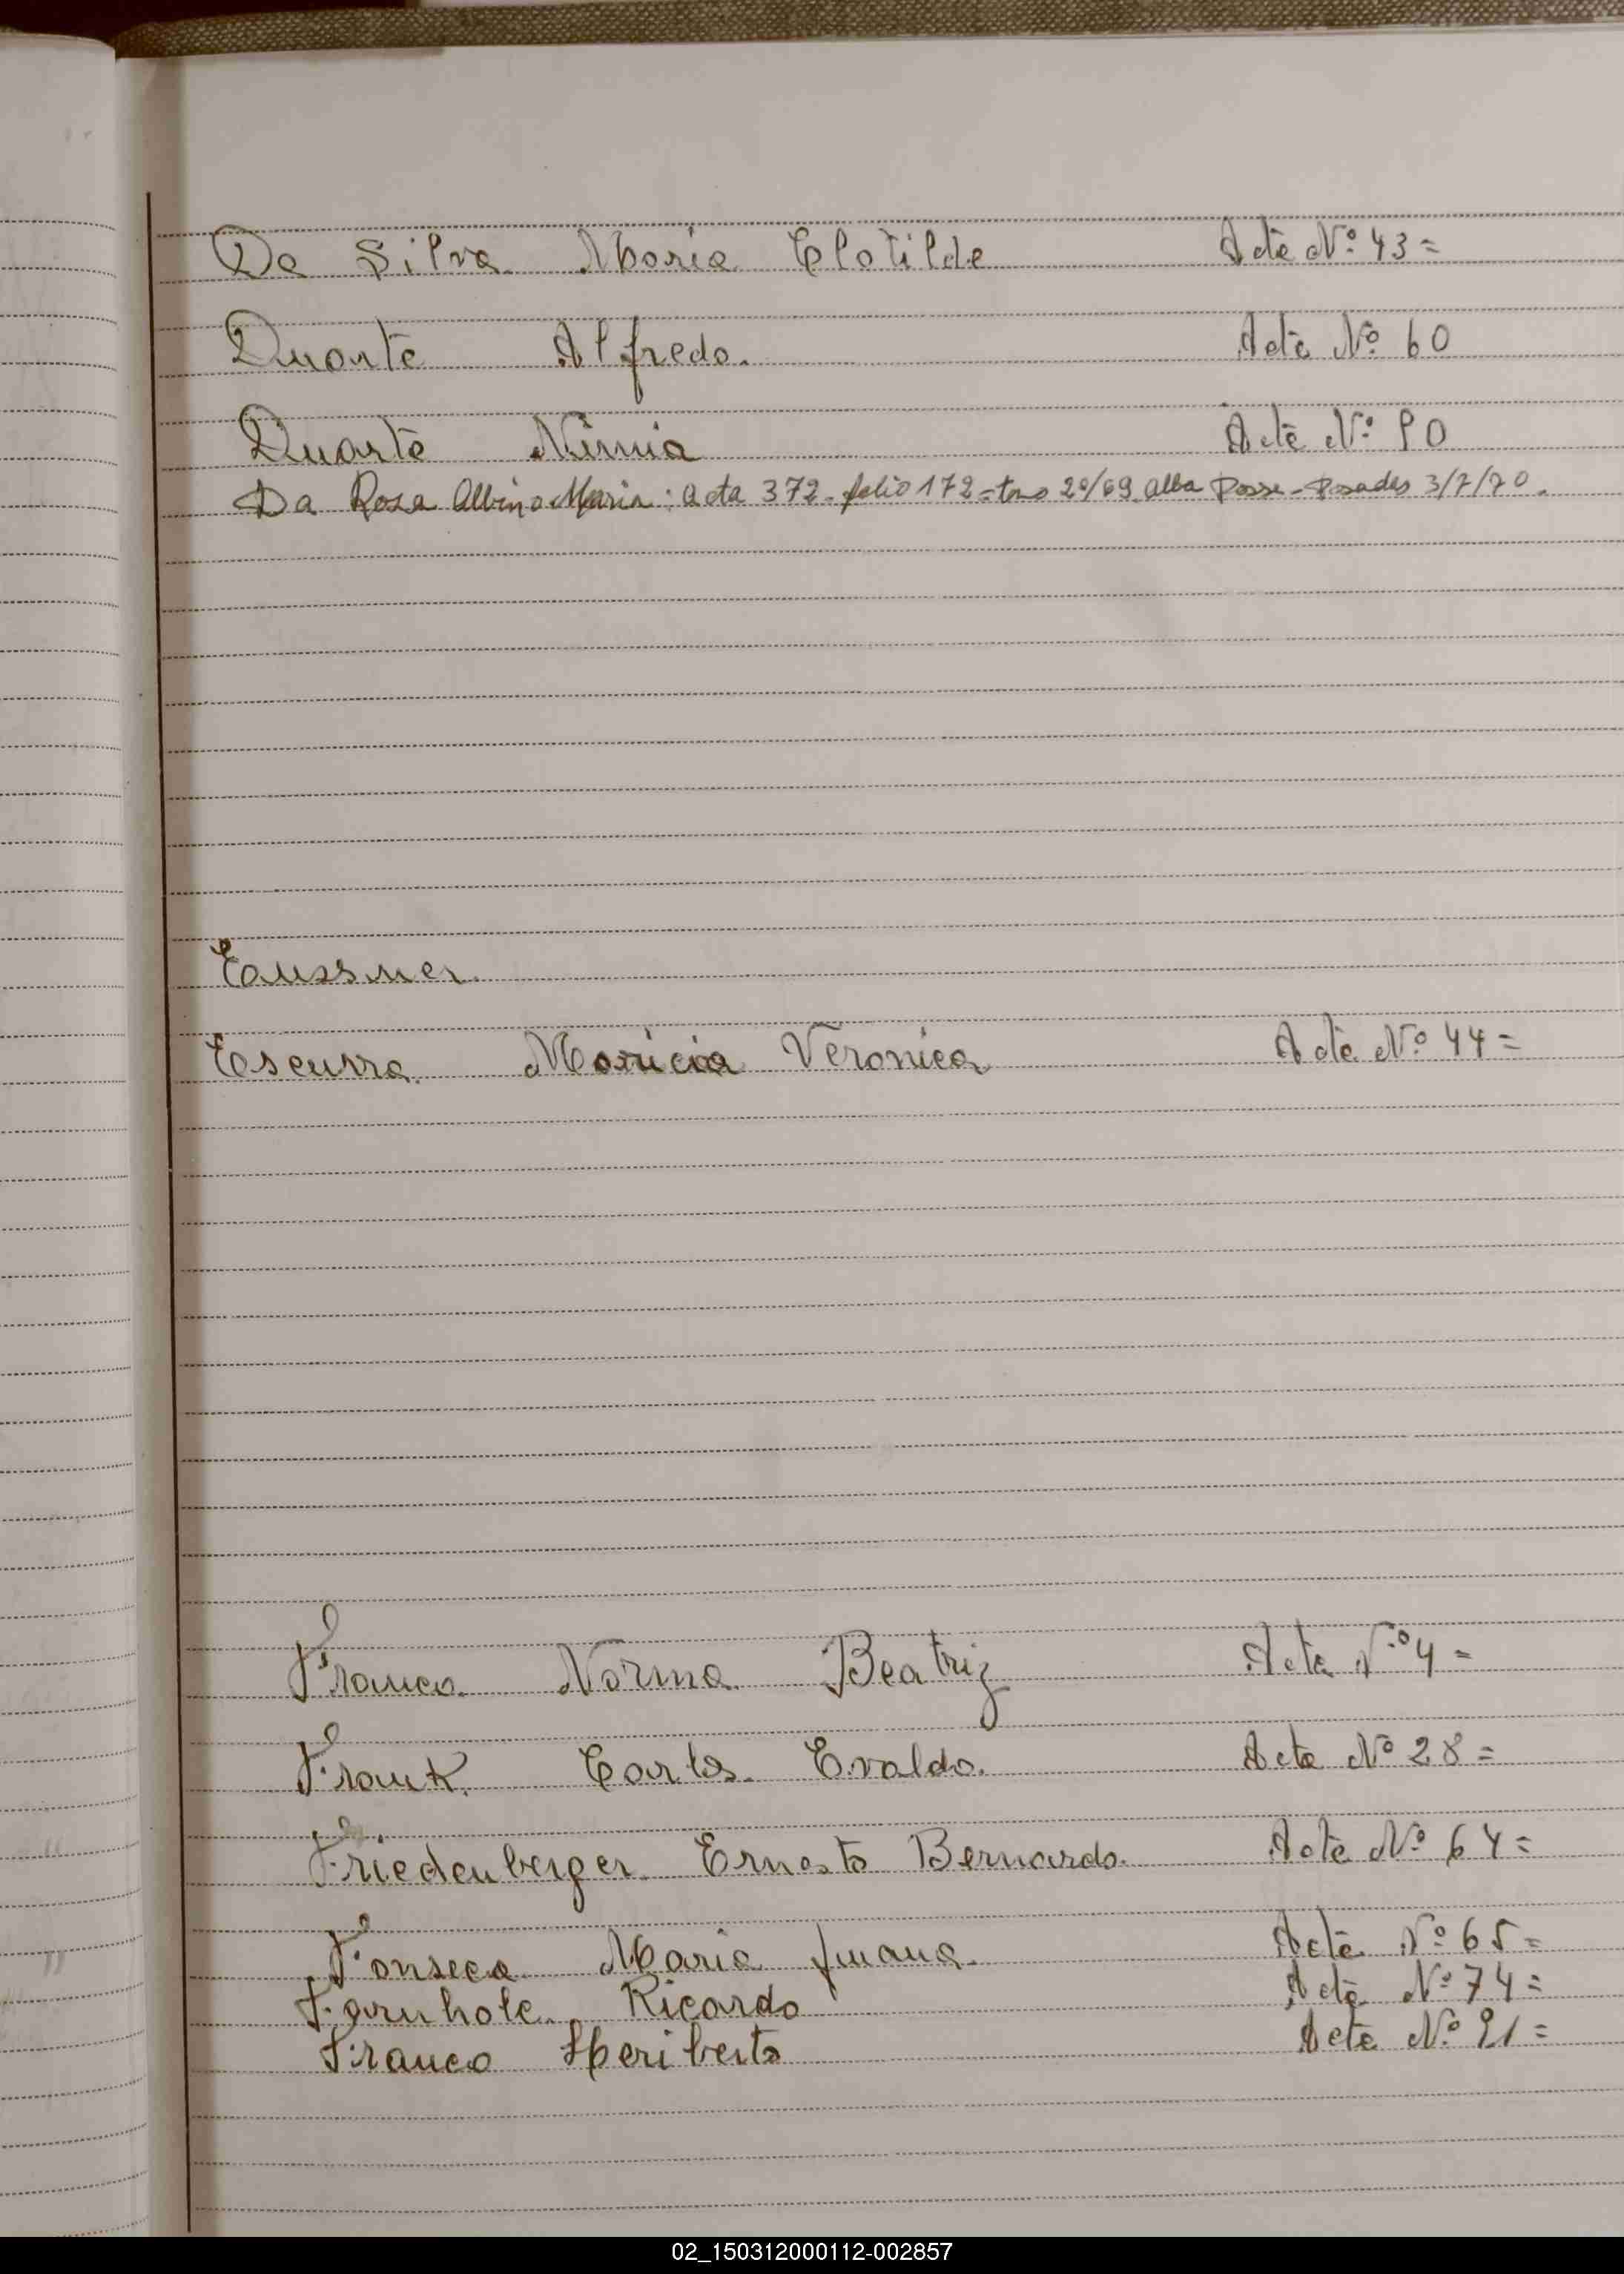 Da Silva Maria Clotilde Acta Nº 43=
Duarte Alfredo. Acta Nº 60
Duarte Nimia Acta Nº 90
Da Rosa Albino Maria: acta 372- folio 172=tomo 2º/69 Alba Posse - Posadas 3/7/70.
Eaussner.
Escurra. Maricia Veronica Acta Nº 44=
Franco. Norma Beatriz Acta Nº 4=
Frank. Carlos Evaldo. Acta Nº 28=
Friedenberger. Ernesto Bernardo. Acta Nº 64=
Fonseca Maria Juana. Acta Nº 65=
Farnhole. Ricardo Acta Nº 74=
Franco Heriberto Acta Nº 91=
02_150312000112-002857